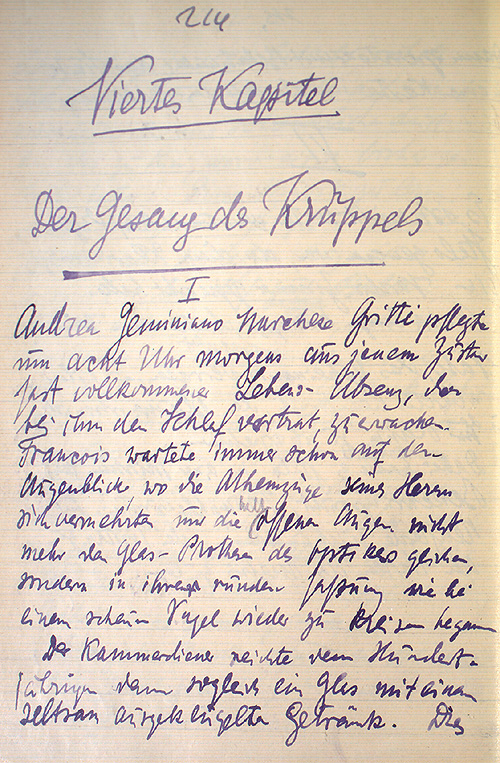 214
Viertes Kapitel
Der Gesang des Krüppels
I
Andrea Geminiano Marchese Gritti pflegte
um acht Uhr morgens aus jenem Zustand
fast vollkommener Lebens-Absenz, der
bei ihm den Schlaf vertrat, zu erwachen.
Francois wartete immer schon auf den
Augenblick, wo die Athemzüge seines Herrn
sich vermehrten und die halb offenen Augen nicht
mehr den Glas-Prothesen des Optikers glichen,
sondern in ihrer runden Fassung wie bei
einem scheuen Vogel wieder zu kreisen begannen
Der Kammerdiener reichte dem Hundert-
jährigen dann sogleich ein Glas mit einem
seltsam ausgeklügelten Getränk. Dies